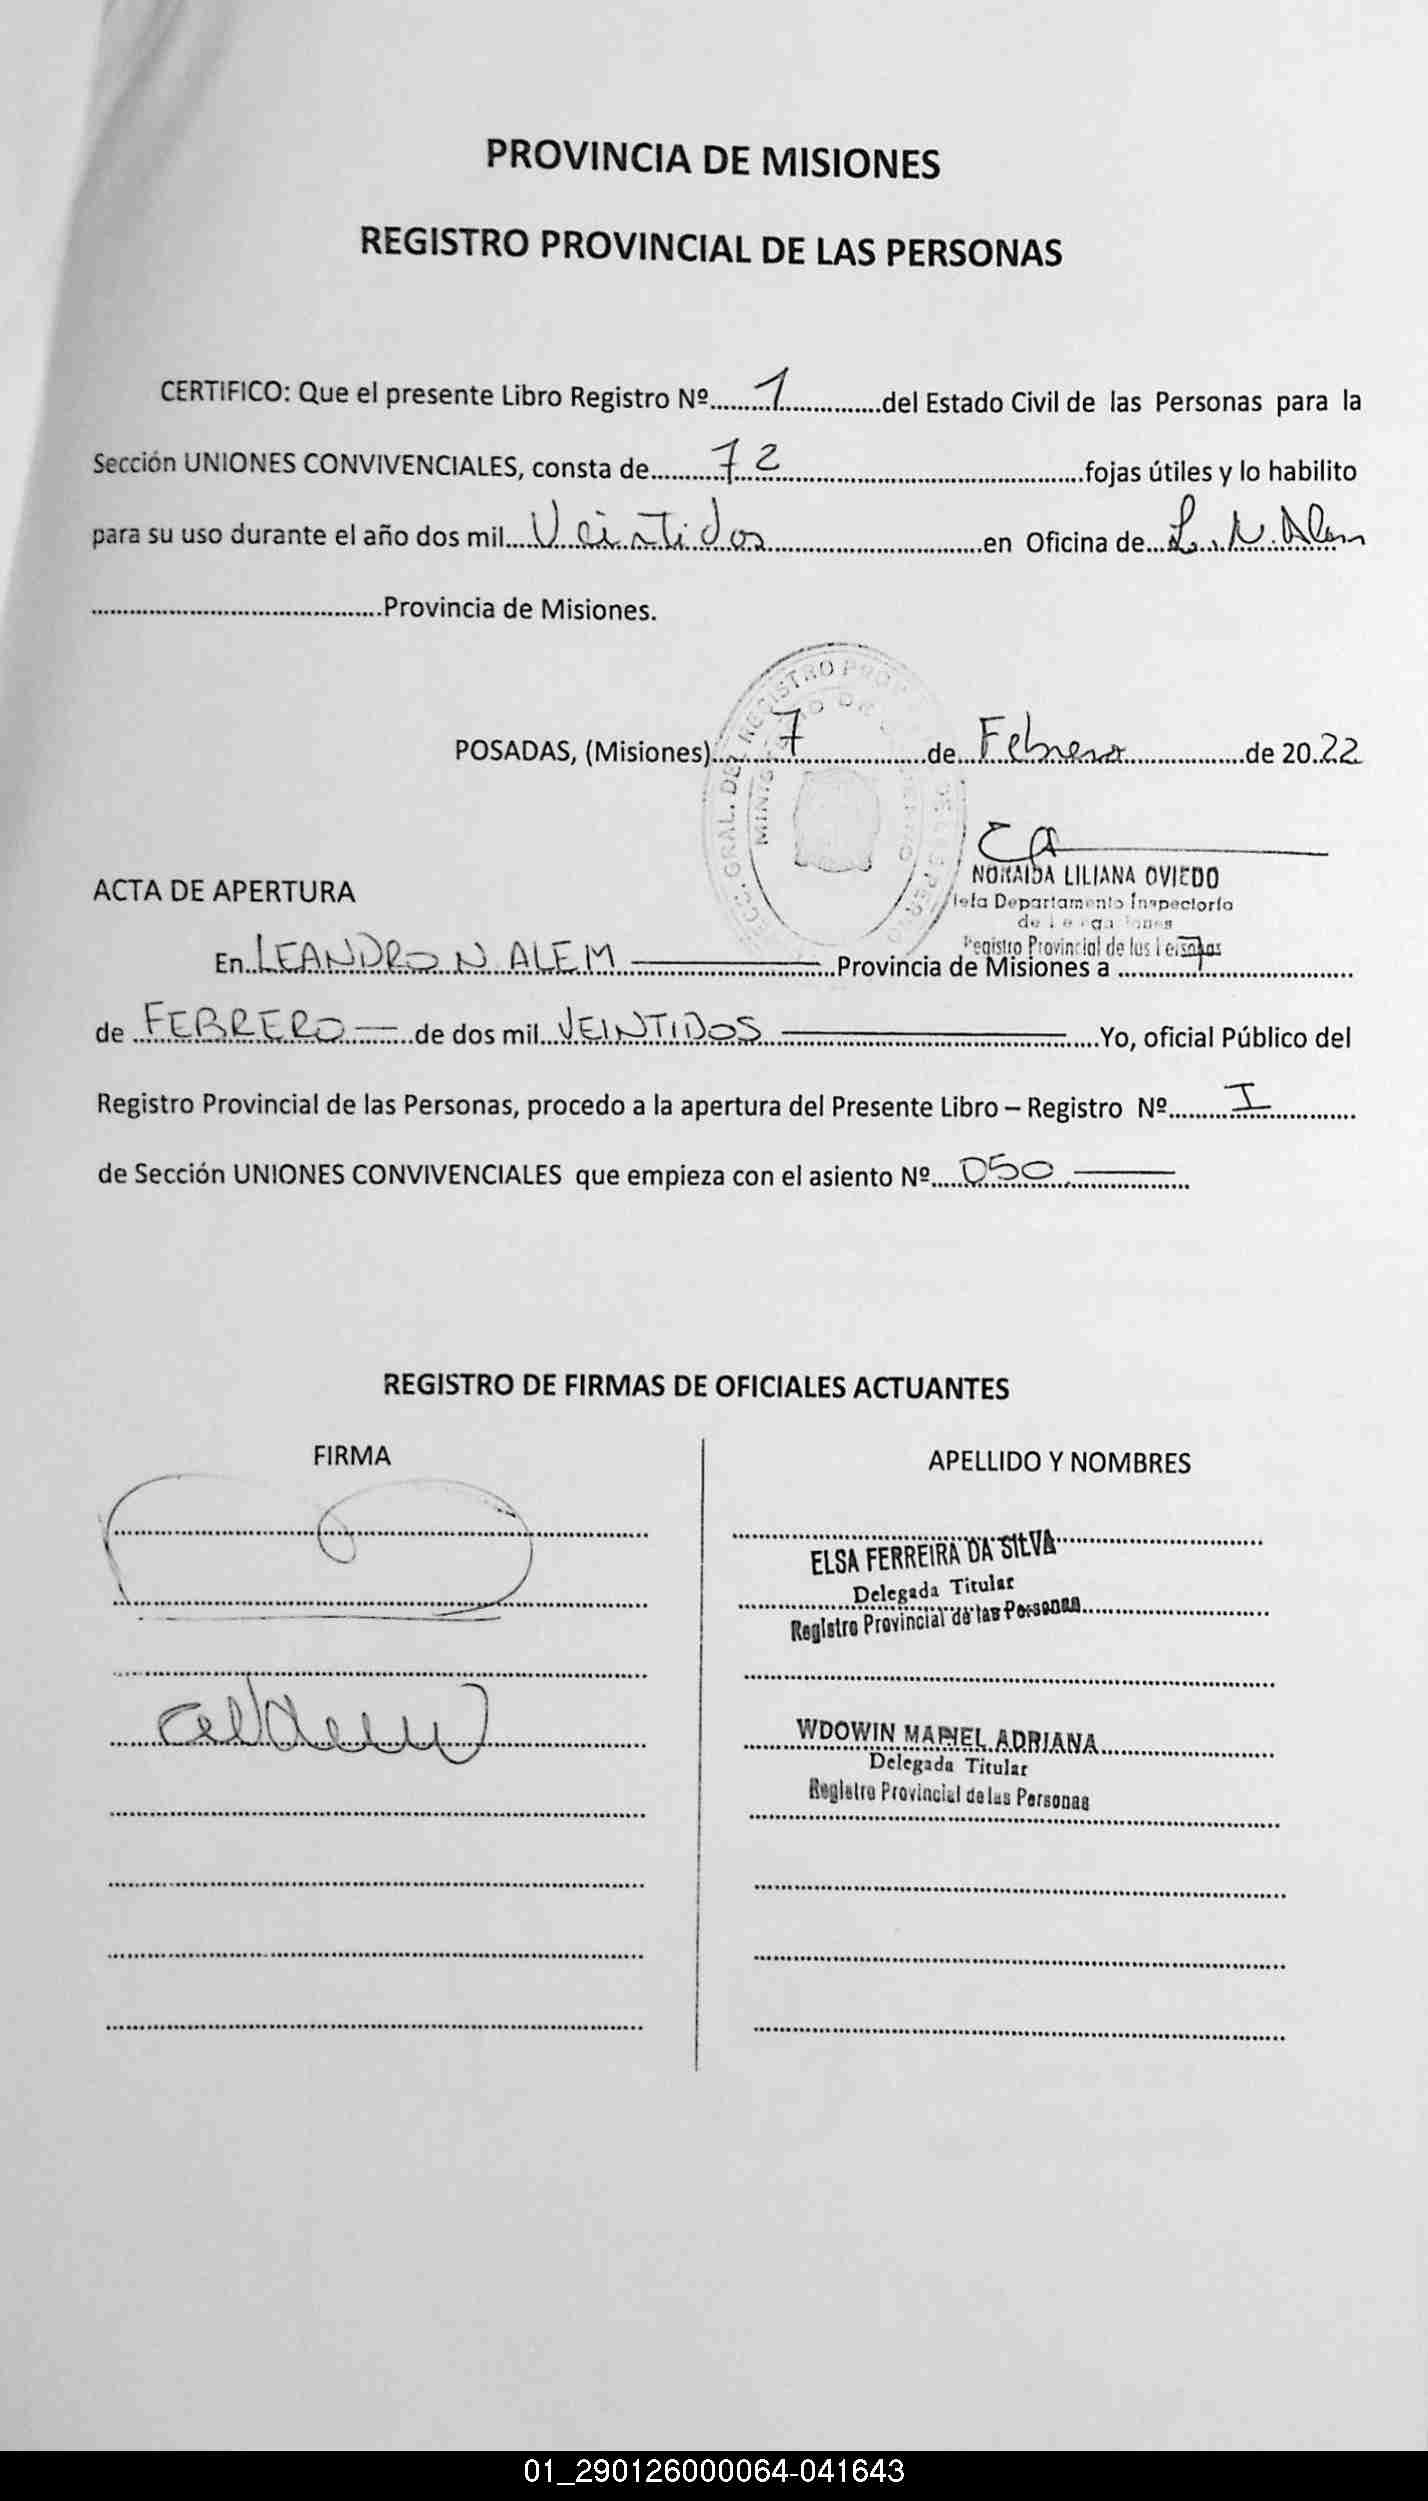 PROVINCIA DE MISIONES
REGISTRO PROVINCIAL DE LAS PERSONAS
CERTIFICO: Que el presente Libro Registro Nº 1 del Estado Civil de las Personas para la
Sección UNIONES CONVIVENCIALES, consta de 72 fojas útiles y lo habilito
para su uso durante el año dos mil Veintidos en Oficina de L. N. Alem
Provincia de Misiones.
POSADAS, (Misiones) 7 de Febrero de 2022
NORAIDA LILIANA OVIEDO
Departamento Inspectoría
Registro Provincial de las Personas
ACTA DE APERTURA
En LEANDRO N ALEM Provincia de Misiones a 7
de FEBRERO de dos mil VEINTIDOS Yo, oficial Público del
Registro Provincial de las Personas, procedo a la apertura del Presente Libro – Registro Nº I
de Sección UNIONES CONVIVENCIALES que empieza con el asiento Nº 050
REGISTRO DE FIRMAS DE OFICIALES ACTUANTES
FIRMA
APELLIDO Y NOMBRES
ELSA FERREIRA DA SILVA
Delegada Titular
Registro Provincial de las Personas
WDOWIN MARIEL ADRIANA
Delegada Titular
Registro Provincial de las Personas
01_290126000064-041643